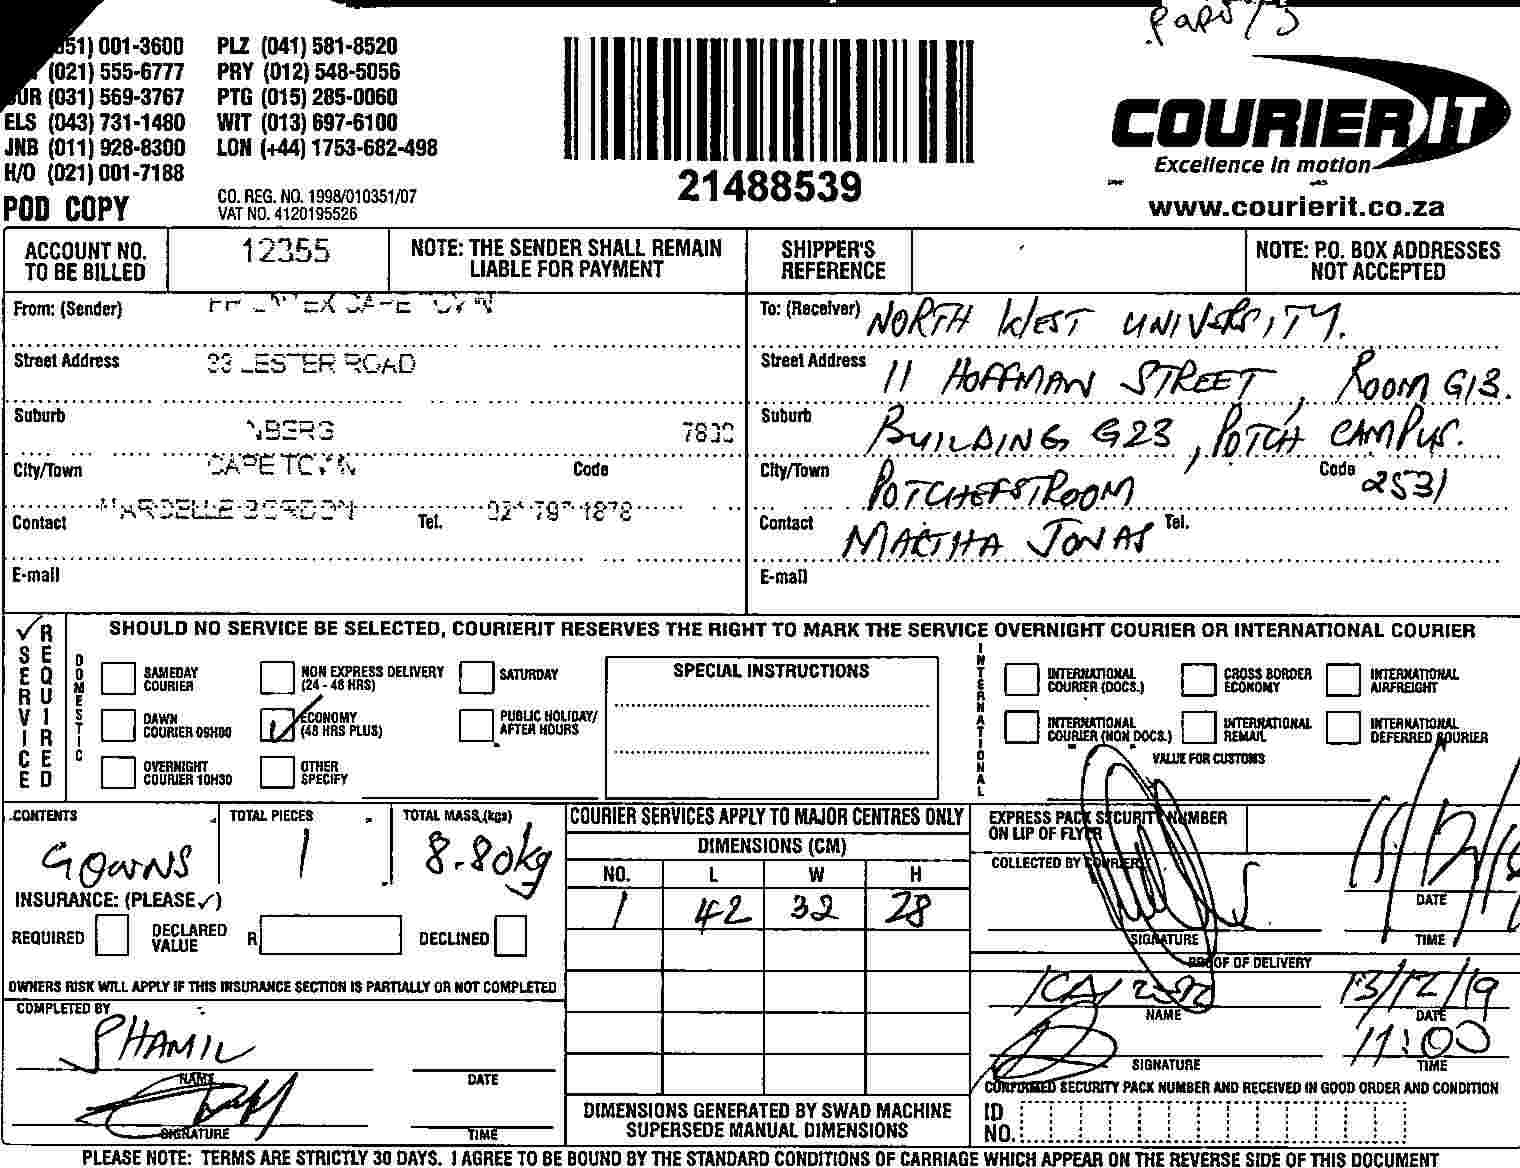 051) 001-3600 PLZ (041) 581-8520
(021) 555-6777 PRY (012) 548-5056
DUR (031) 569-3767 PTG (015) 285-0060
ELS (043) 731-1480 WIT (013) 697-6100
JNB (011) 928-8300 LON (+44) 1753-682-498
H/O (021) 001-7188
CO. REG. NO. 1998/010351/07
POD COPY VAT NO. 4120195526
21488539
COURIER IT
Excellence in motion
www.courierit.co.za
ACCOUNT NO. TO BE BILLED 12355
NOTE: THE SENDER SHALL REMAIN LIABLE FOR PAYMENT
SHIPPER'S REFERENCE
NOTE: P.O. BOX ADDRESSES NOT ACCEPTED
From: (Sender) CAPE TOWN
Street Address LESTER ROAD
Suburb
City/Town CAPE TOWN Code
Contact Tel.
E-mail
To: (Receiver) NORTH WEST UNIVERSITY.
Street Address 11 HOFFMAN STREET, ROOM G13.
Suburb BUILDING G23, POTCH CAMPUS.
City/Town POTCHEFSTROOM Code 2531
Contact MARTHA JONAS Tel.
E-mail
✓ SERVICE REQUIRED
SHOULD NO SERVICE BE SELECTED, COURIERIT RESERVES THE RIGHT TO MARK THE SERVICE OVERNIGHT COURIER OR INTERNATIONAL COURIER
DOMESTIC
SAMEDAY COURIER
NON EXPRESS DELIVERY (24 - 48 HRS)
SATURDAY
DAWN COURIER 09H00
ECONOMY (48 HRS PLUS)
PUBLIC HOLIDAY/ AFTER HOURS
OVERNIGHT COURIER 10H30
OTHER SPECIFY
SPECIAL INSTRUCTIONS
INTERNATIONAL
INTERNATIONAL COURIER (DOCS.)
CROSS BORDER ECONOMY
INTERNATIONAL AIRFREIGHT
INTERNATIONAL COURIER (NON DOCS.)
INTERNATIONAL REMAIL
INTERNATIONAL DEFERRED COURIER
VALUE FOR CUSTOMS
CONTENTS GOWNS
TOTAL PIECES 1
TOTAL MASS (kgs) 8.80kg
INSURANCE: (PLEASE ✓)
REQUIRED DECLARED VALUE R DECLINED
OWNERS RISK WILL APPLY IF THIS INSURANCE SECTION IS PARTIALLY OR NOT COMPLETED
COMPLETED BY
SHAMIL
NAME DATE
SIGNATURE TIME
COURIER SERVICES APPLY TO MAJOR CENTRES ONLY
DIMENSIONS (CM)
NO. L W H
1 42 32 28
DIMENSIONS GENERATED BY SWAD MACHINE
SUPERSEDE MANUAL DIMENSIONS
EXPRESS PACK SECURITY NUMBER ON LIP OF FLYER
COLLECTED BY COURIERIT
DATE
SIGNATURE TIME
PROOF OF DELIVERY
13/12/19
NAME DATE
11:00
SIGNATURE TIME
CONFIRMED SECURITY PACK NUMBER AND RECEIVED IN GOOD ORDER AND CONDITION
ID NO.
PLEASE NOTE: TERMS ARE STRICTLY 30 DAYS. I AGREE TO BE BOUND BY THE STANDARD CONDITIONS OF CARRIAGE WHICH APPEAR ON THE REVERSE SIDE OF THIS DOCUMENT